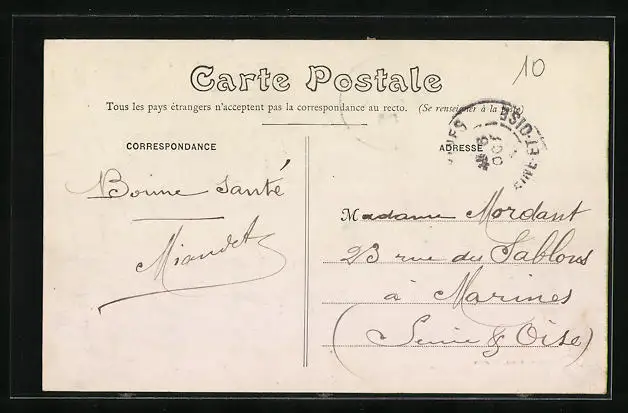 10
Carte Postale
Tous les pays étrangers n'acceptent pas la correspondance au recto. (Se renseigner à la poste)
CORRESPONDANCE
ADRESSE
Bonne santé
Miandet
Madame Mordant
23 rue du Sablons
à Marines
(Seine & Oise)
INE-ET-OISE